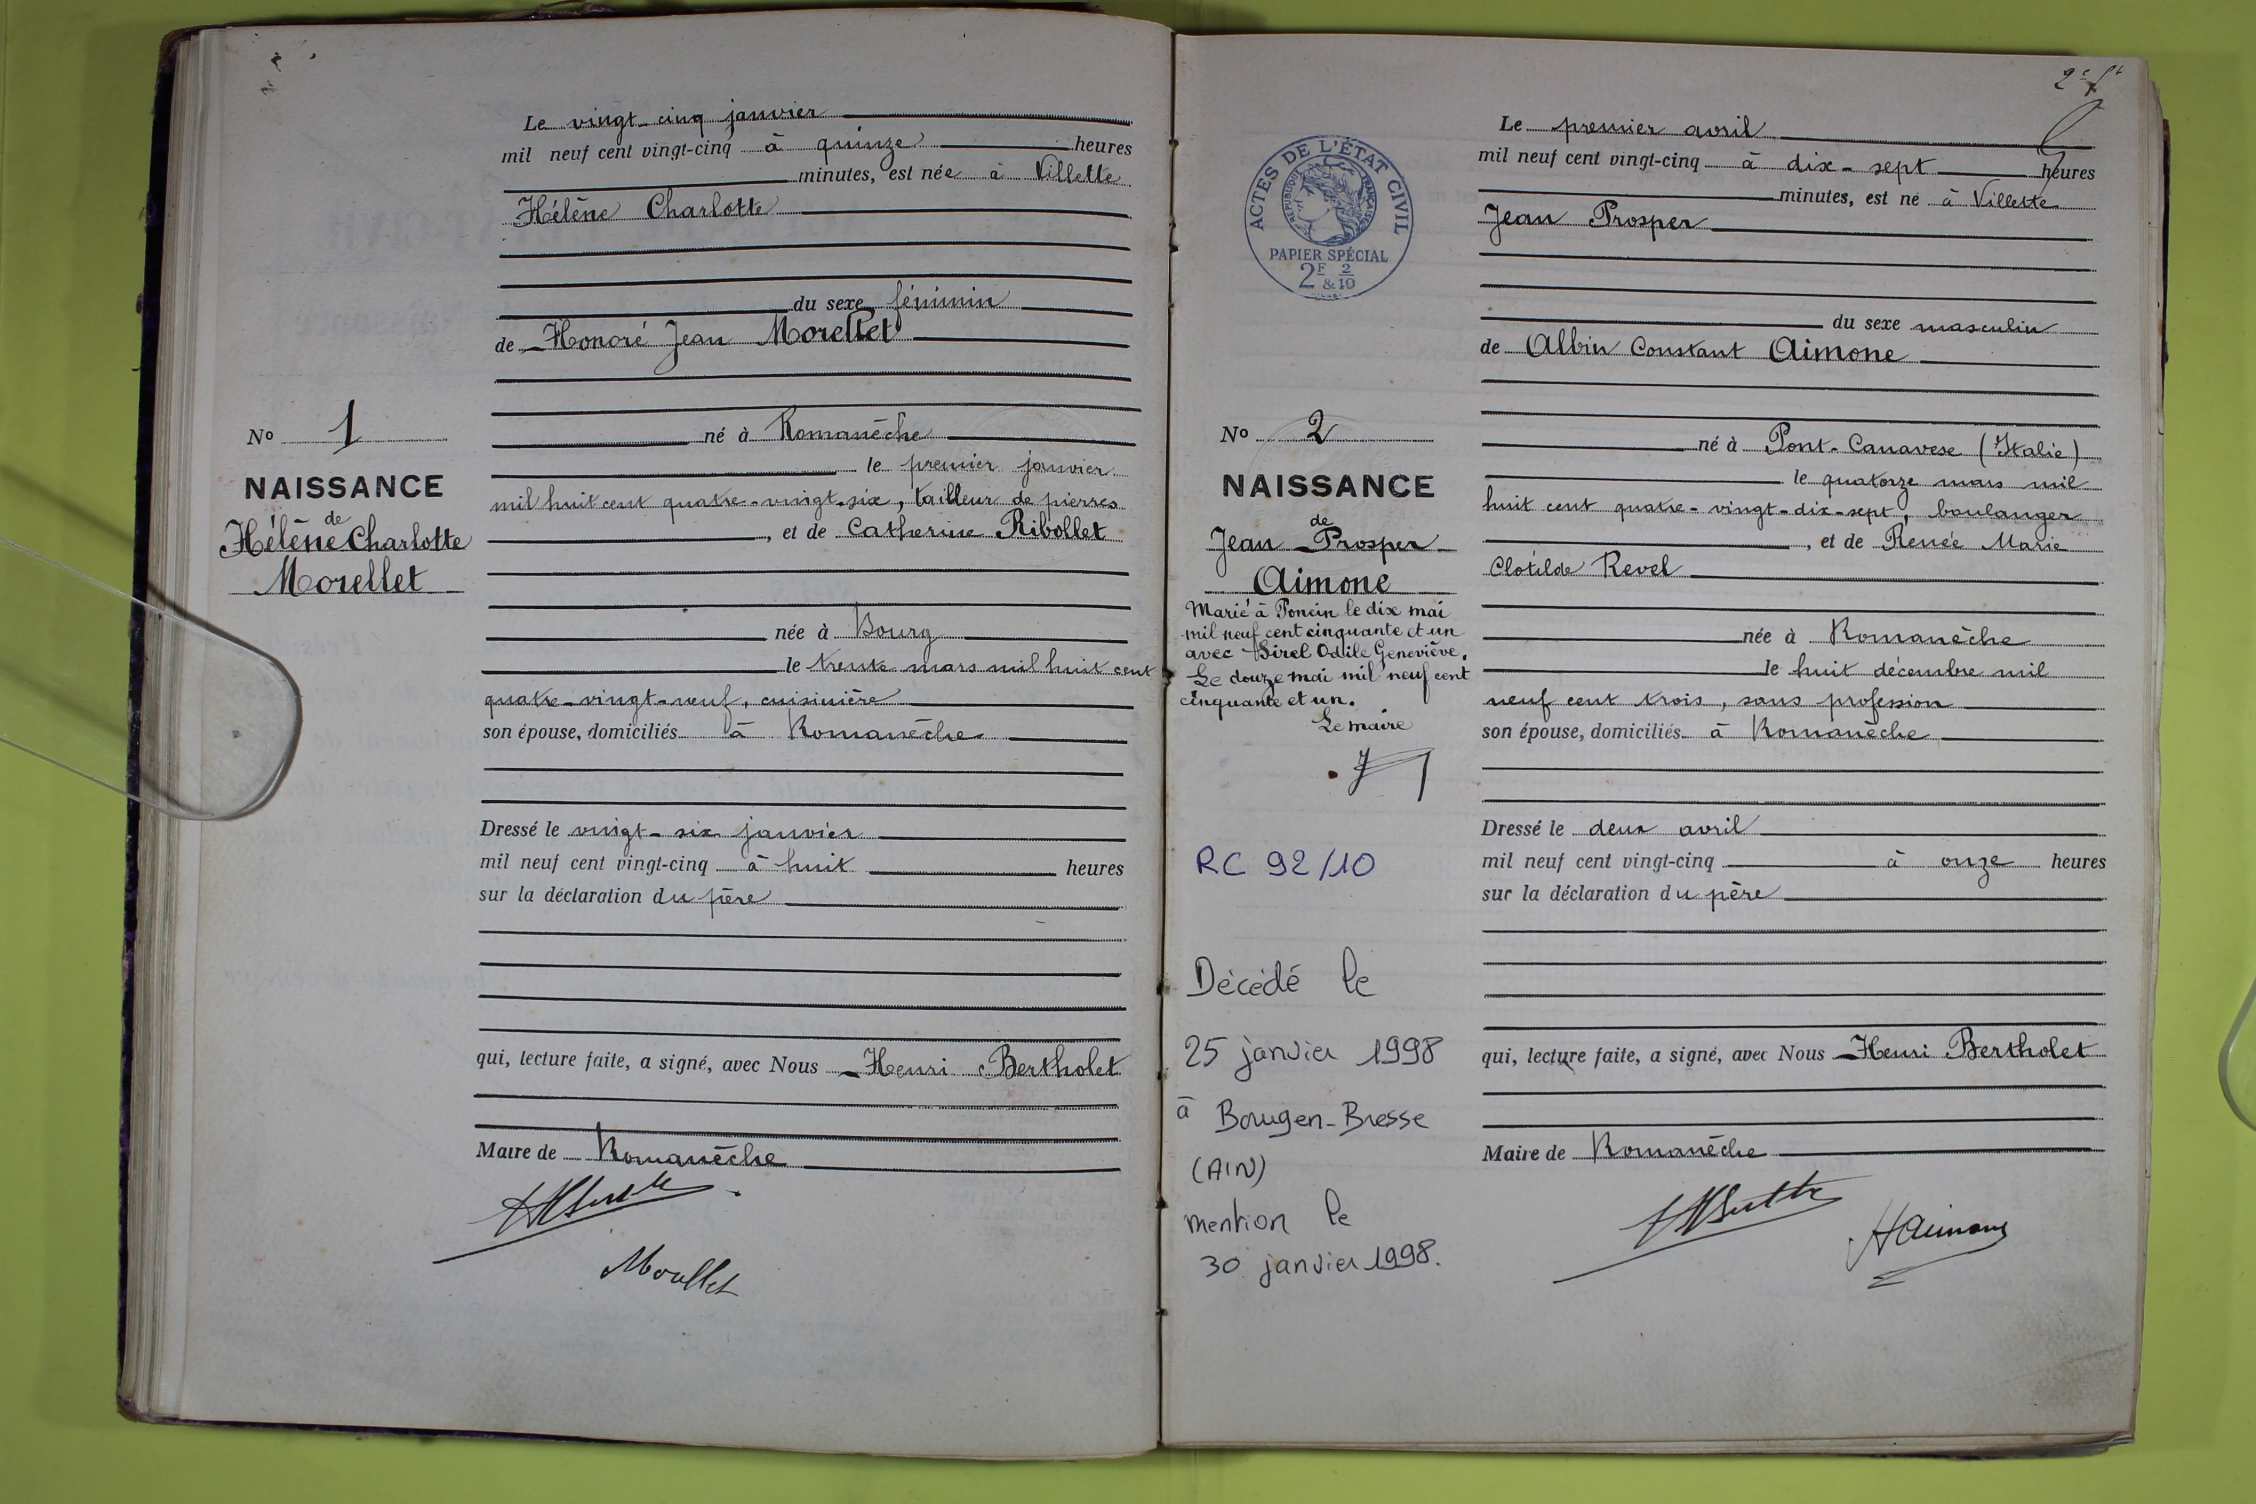 Le vingt-cinq janvier
mil neuf cent vingt-cinq à quinze heures
minutes, est née à Villette
Hélène Charlotte
du sexe féminin
de Honoré Jean Morellet
né à Romanèche
le premier janvier
mil huit cent quatre-vingt-six, tailleur de pierres
, et de Catherine Ribollet
née à Bourg
le trente mars mil huit cent
quatre-vingt-neuf, cuisinière
son épouse, domiciliés à Romanèche
Dressé le vingt-six janvier
mil neuf cent vingt-cinq à huit heures
sur la déclaration du père
qui, lecture faite, a signé, avec Nous Henri Bertholet
Maire de Romanèche
Morellet
No 1
NAISSANCE
de
Hélène Charlotte
Morellet
ACTES DE L'ÉTAT CIVIL
RÉPUBLIQUE FRANÇAISE
PAPIER SPÉCIAL
2F & 2/10
No 2
NAISSANCE
de
Jean Prosper
Aimone
Marié à Poncin le dix mai
mil neuf cent cinquante et un
avec Sirel Odile Geneviève.
Le douze mai mil neuf cent
cinquante et un.
Le maire
RC 92/10
Décédé le
25 janvier 1998
à Bourgen-Bresse
(AIN)
mention le
30 janvier 1998.
Le premier avril
mil neuf cent vingt-cinq à dix-sept heures
minutes, est né à Villette
Jean Prosper
du sexe masculin
de Albin Constant Aimone
né à Pont-Canavese (Italie)
le quatorze mars mil
huit cent quatre-vingt-dix-sept, boulanger
, et de Renée Marie
Clotilde Revel
née à Romanèche
le huit décembre mil
neuf cent trois, sans profession
son épouse, domiciliés à Romanèche
Dressé le deux avril
mil neuf cent vingt-cinq à onze heures
sur la déclaration du père
qui, lecture faite, a signé, avec Nous Henri Bertholet
Maire de Romanèche
Aimone